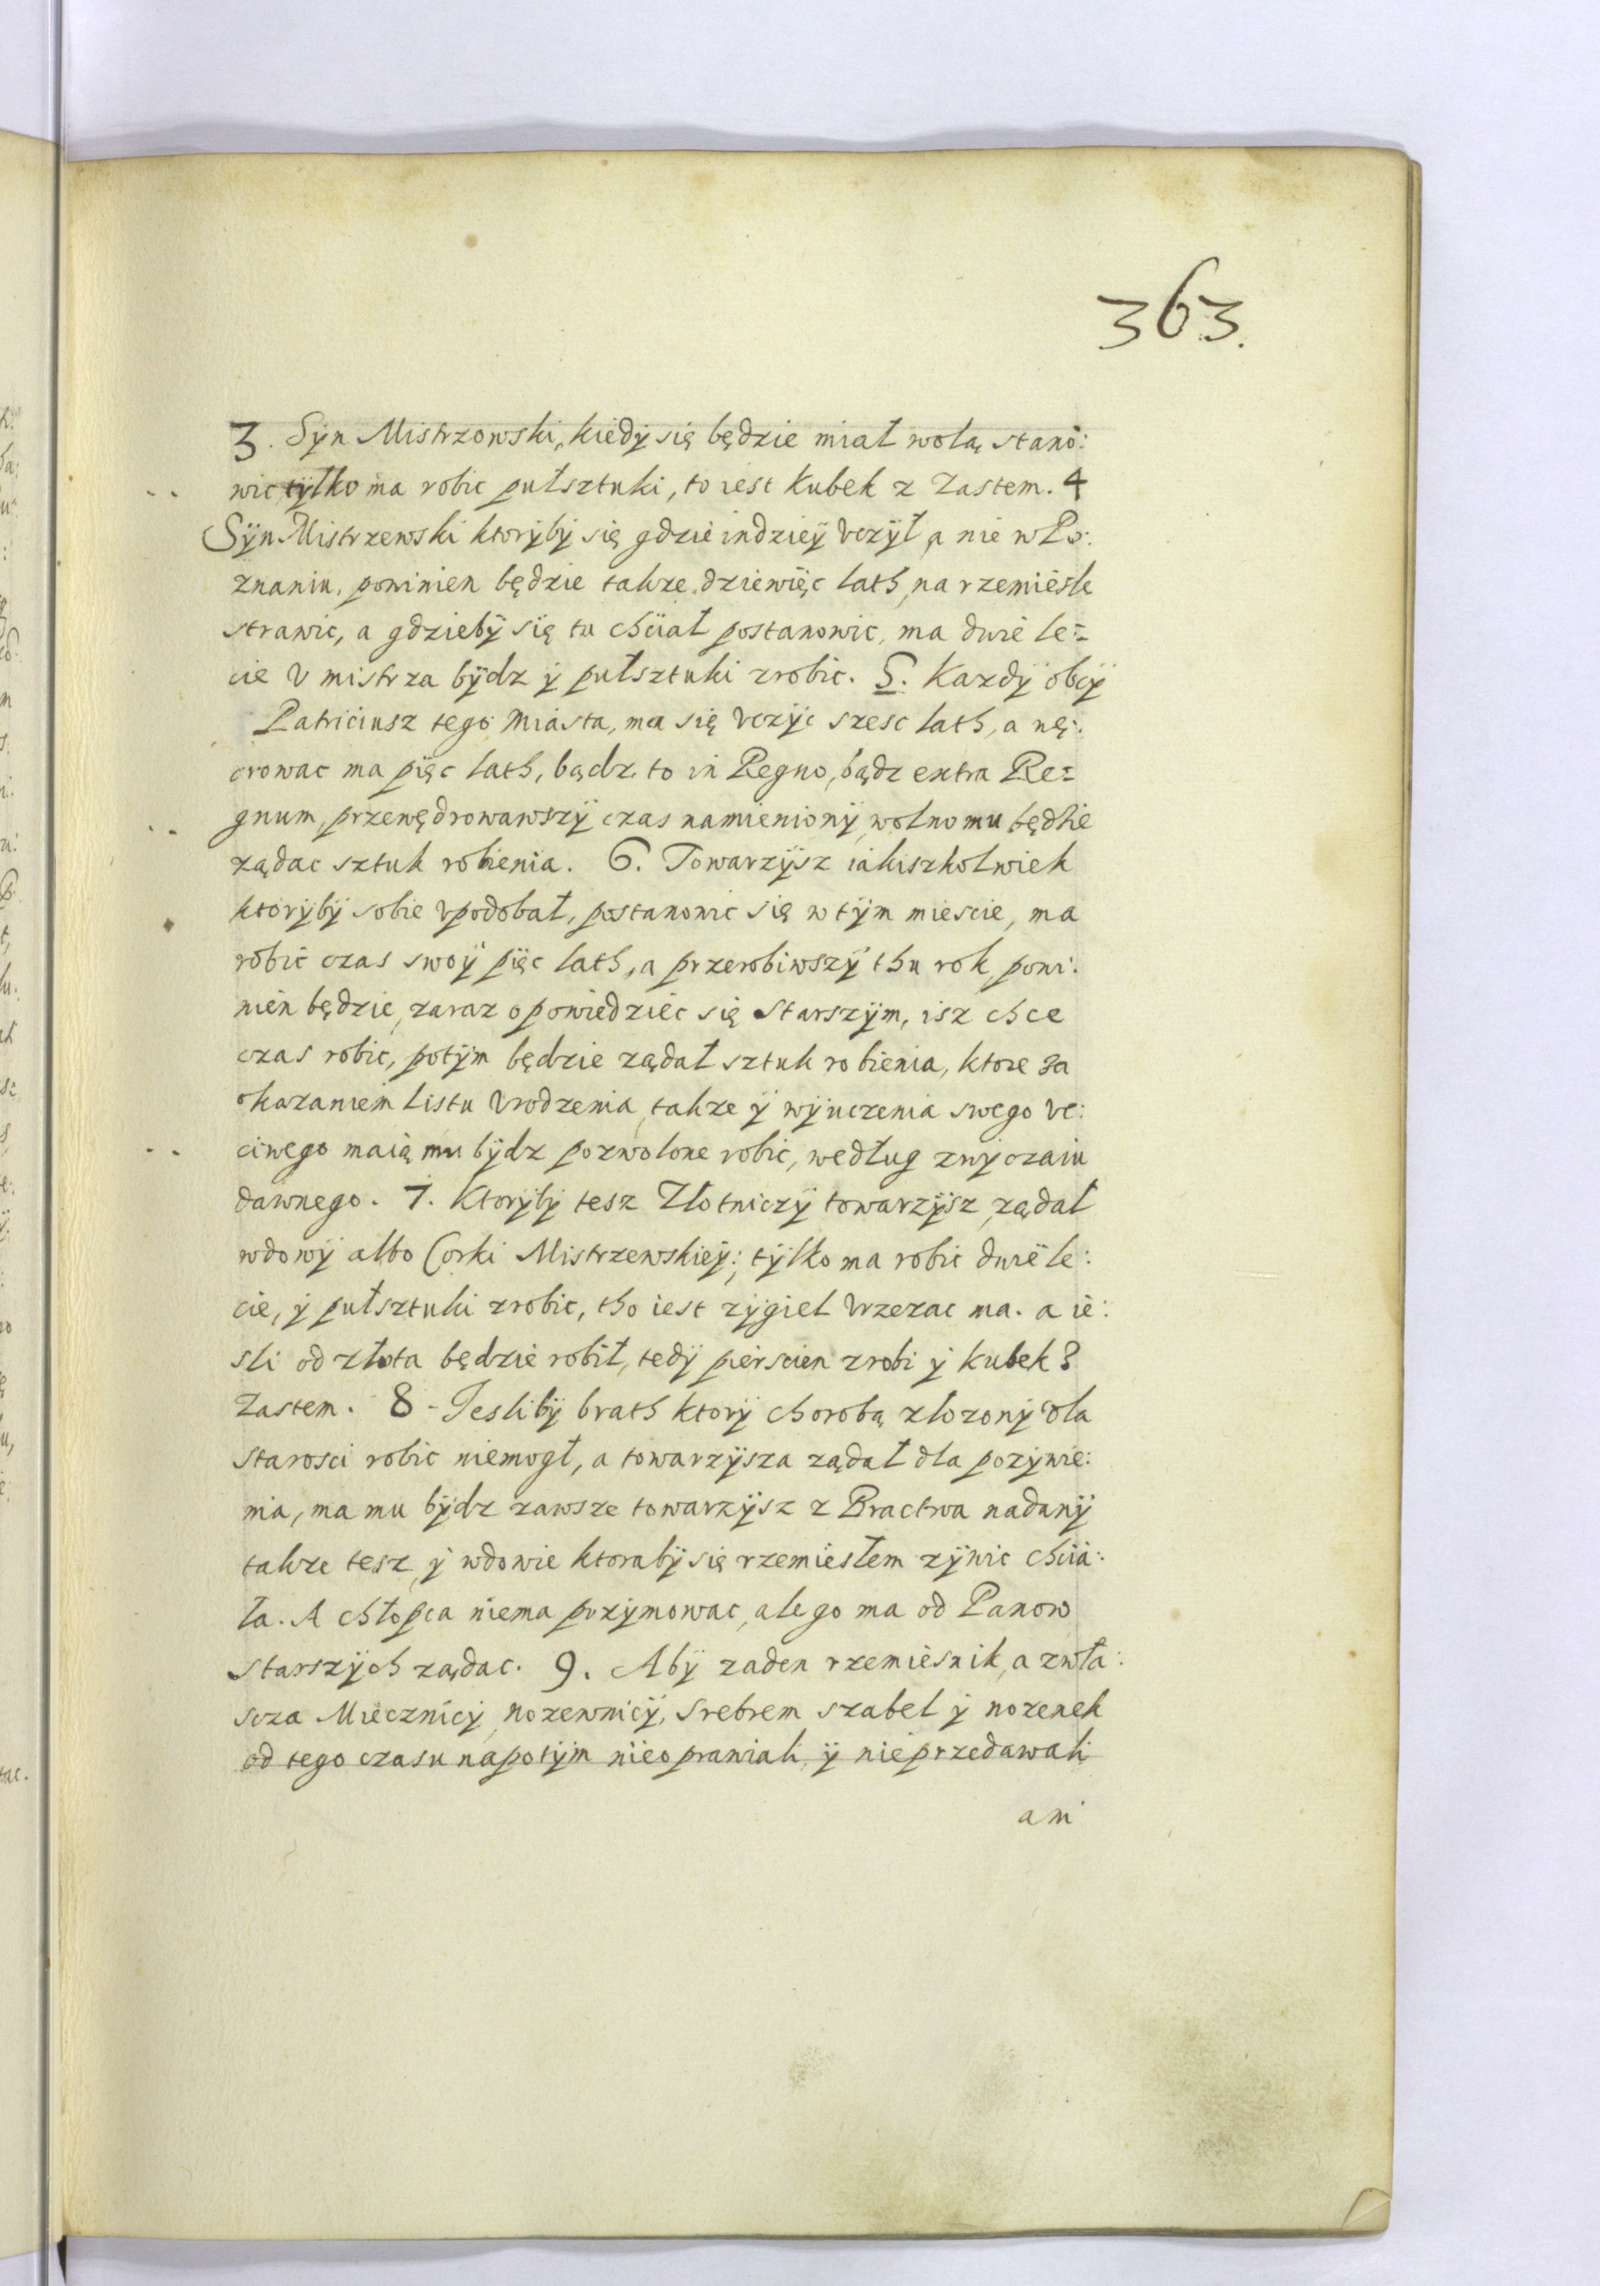 363.
3. Syn Mistrzowski, kiedy się będzie miał wolą stano:
wic tylko ma robic pułsztuki, to iest Kubek z Zastem. 4
Syn Mistrzewski ktoryby się gdzie indziey vczył a nie w Po:
znaniu, powinien będzie takze dziewięc lath, na rzemięsle
strawic, a gdzieby się tu chciał postanowic, ma dwie le=
cie v mistrza bydz y pułsztuki zrobic. 5. Kazdy obcy
Patriciusz tego Miasta, ma się vczyc szesc lath, a wę:
drowac ma pięc lath, bądz to in Regno, bądz extra Re=
gnum, przewędrowawszy czas namieniony, wolno mu będzie
ządac sztuk robienia. 6. Towarzysz iakiszkolwiek
ktoryby sobie vpodobał, postanowic się w tym miescie, ma
robic czas swoy pięc lath, a przerobiwszy thu rok, powi:
nien będzie, zaraz opowiedziec się Starszym, isz chce
czas robic, potym będzie ządał sztuk robienia, ktore za
okazaniem Listu Vrodzenia, takze y wyuczenia swego vc:
ciwego maią mu bydz pozwolone robic, według zwyczaiu
dawnego. 7. Ktoryby tesz Złotniczy towarzysz, ządał
wdowy albo Corki Mistrzewskiey; tylko ma robic dwie le:
cie, y pułsztuki zrobic, tho iest zygiel Vrzezac ma. a ie:
sli od złota będzie robił, tedy pierscien zrobi y Kubek z
Zastem. 8 - Iesliby brath ktory chorobą złozony dla
starosci robic niemogł, a towarzysza ządał dla pozywie:
nia, ma mu bydz zawsze towarzysz z Bractwa nadany
takze tesz, y wdowie ktoraby się rzemiesłem zywic chcia:
ła. A chłopca niema przymowac, ale go ma od Panow
Starszych ządac. 9. Aby zaden rzemiesnik, a zwła:
scza Miecznicy, nozewnicy, srebrem szabel y nozenek
od tego czasu napotym nieoprawiali, y nieprzedawali
ani